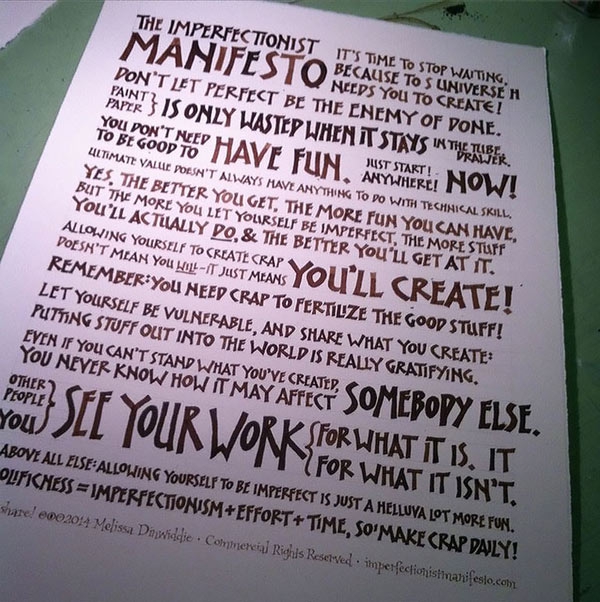 THE IMPERFECTIONIST
MANIFESTO
IT'S TIME TO STOP WAITING,
BECAUSE TO S UNIVERSE H
NEEDS YOU TO CREATE!
DON'T LET PERFECT BE THE ENEMY OF DONE.
PAINT
PAPER } IS ONLY WASTED WHEN IT STAYS IN THE TUBE.
DRAWER.
YOU DON'T NEED
TO BE GOOD TO HAVE FUN. JUST START!
ANYWHERE! NOW!
ULTIMATE VALUE DOESN'T ALWAYS HAVE ANYTHING TO DO WITH TECHNICAL SKILL.
YES, THE BETTER YOU GET, THE MORE FUN YOU CAN HAVE,
BUT THE MORE YOU LET YOURSELF BE IMPERFECT, THE MORE STUFF
YOU'LL ACTUALLY DO, & THE BETTER YOU'LL GET AT IT.
ALLOWING YOURSELF TO CREATE CRAP
DOESN'T MEAN YOU WILL-IT JUST MEANS YOU'LL CREATE!
REMEMBER: YOU NEED CRAP TO FERTILIZE THE GOOD STUFF!
LET YOURSELF BE VULNERABLE, AND SHARE WHAT YOU CREATE:
PUTTING STUFF OUT INTO THE WORLD IS REALLY GRATIFYING.
EVEN IF YOU CAN'T STAND WHAT YOU'VE CREATED,
YOU NEVER KNOW HOW IT MAY AFFECT SOMEBODY ELSE.
OTHER
PEOPLE
YOU } SEE YOUR WORK { FOR WHAT IT IS. IT
FOR WHAT IT ISN'T.
ABOVE ALL ELSE: ALLOWING YOURSELF TO BE IMPERFECT IS JUST A HELLUVA LOT MORE FUN.
OLIFICNESS = IMPERFECTIONISM + EFFORT + TIME, SO MAKE CRAP DAILY!
share! 2014 Melissa Dinwiddie · Commercial Rights Reserved · imperfectionistmanifesto.com